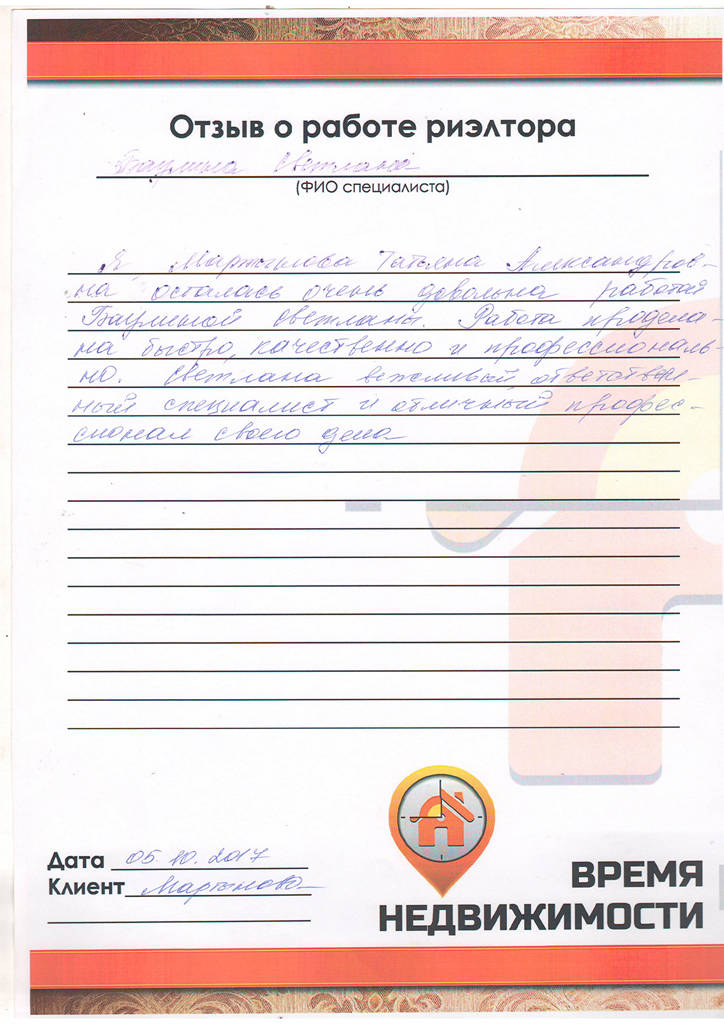 Отзыв о работе риэлтора
Баулина Светлана
(ФИО специалиста)
Я, Мартынова Татьяна Александров-
на осталась очень довольна работай
Баулиной Светланы. Работа продела-
на быстро, качественно и профессиональ-
но. Светлана вежливый, ответствен-
ный специалист и отличный профес-
сионал своего дела
Дата 05.10.2017
Клиент Мартынова
ВРЕМЯ
НЕДВИЖИМОСТИ